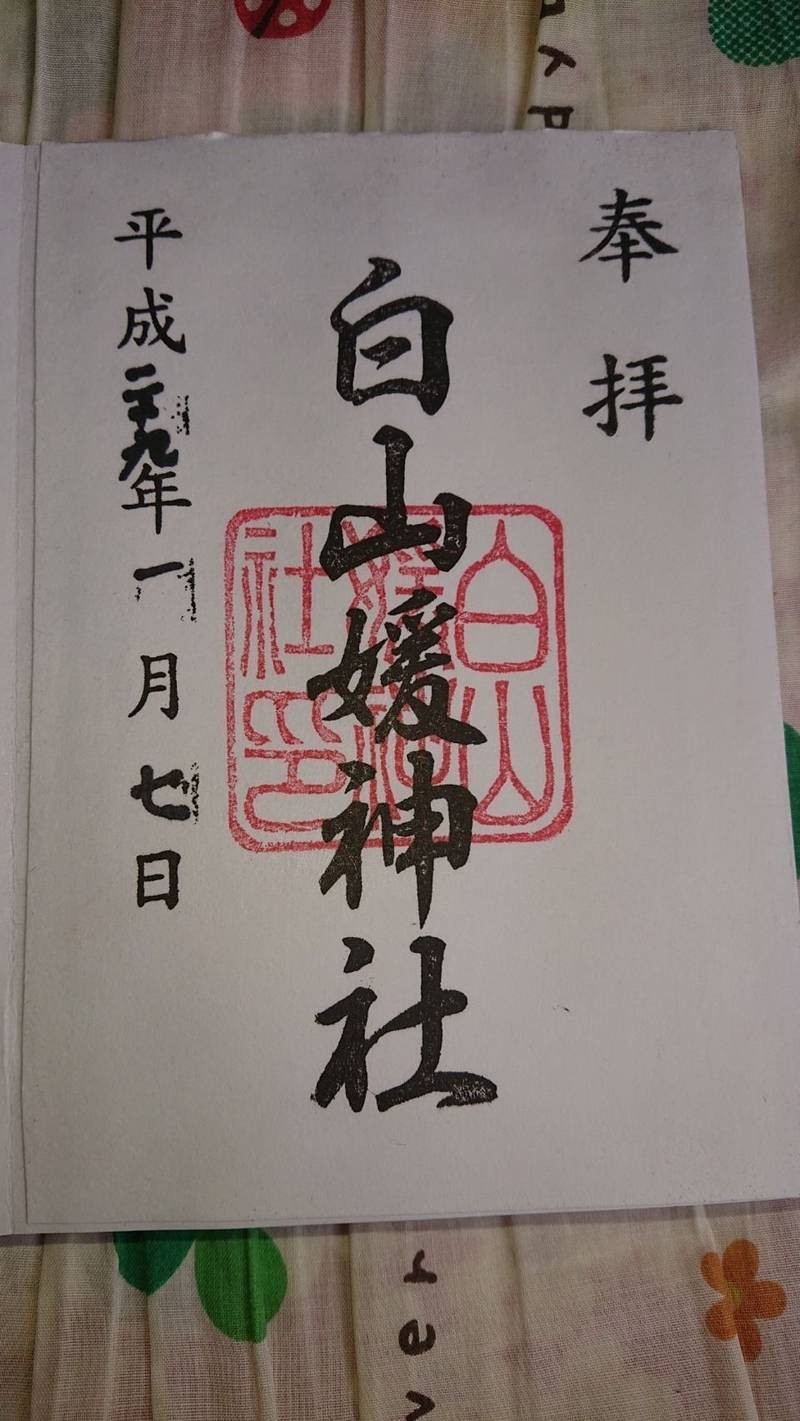 奉拝
白山媛神社
白山媛神社印
平成二十九年一月七日
ver